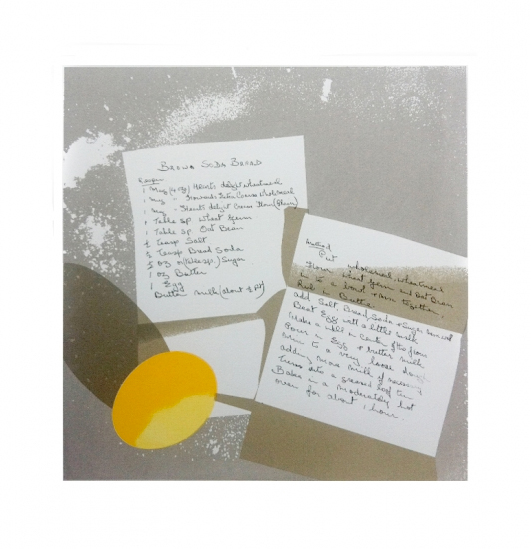 BROWN SODA BREAD
Recipe
1 Mug (4 oz) Howards delight wheatmeal
1 Mug " Howards Extra Coarse Wholemeal
1 Mug " Howards delight Cream Flour (Plain)
1 Table sp. Wheat Germ
1 Table sp. Oat Bran
½ Teasp Salt
½ Teasp Bread Soda
½ oz or (Table sp.) Sugar
1 oz Butter
1 Egg
Butter milk (about ½ pt)
Method
Put wholemeal, wheatmeal
Flour, wheat germ and oat bran
in to a bowl mix together.
Rub in Butter.
add Salt Bread Soda & Sugar
Beat Egg with a little milk
Make a well in Centre of the flour
Pour in Egg & butter milk
turn to a very loose dough
adding more milk if necessary
Turn into a greased loaf tin
Bake in a moderately hot
oven for about 1 hour.